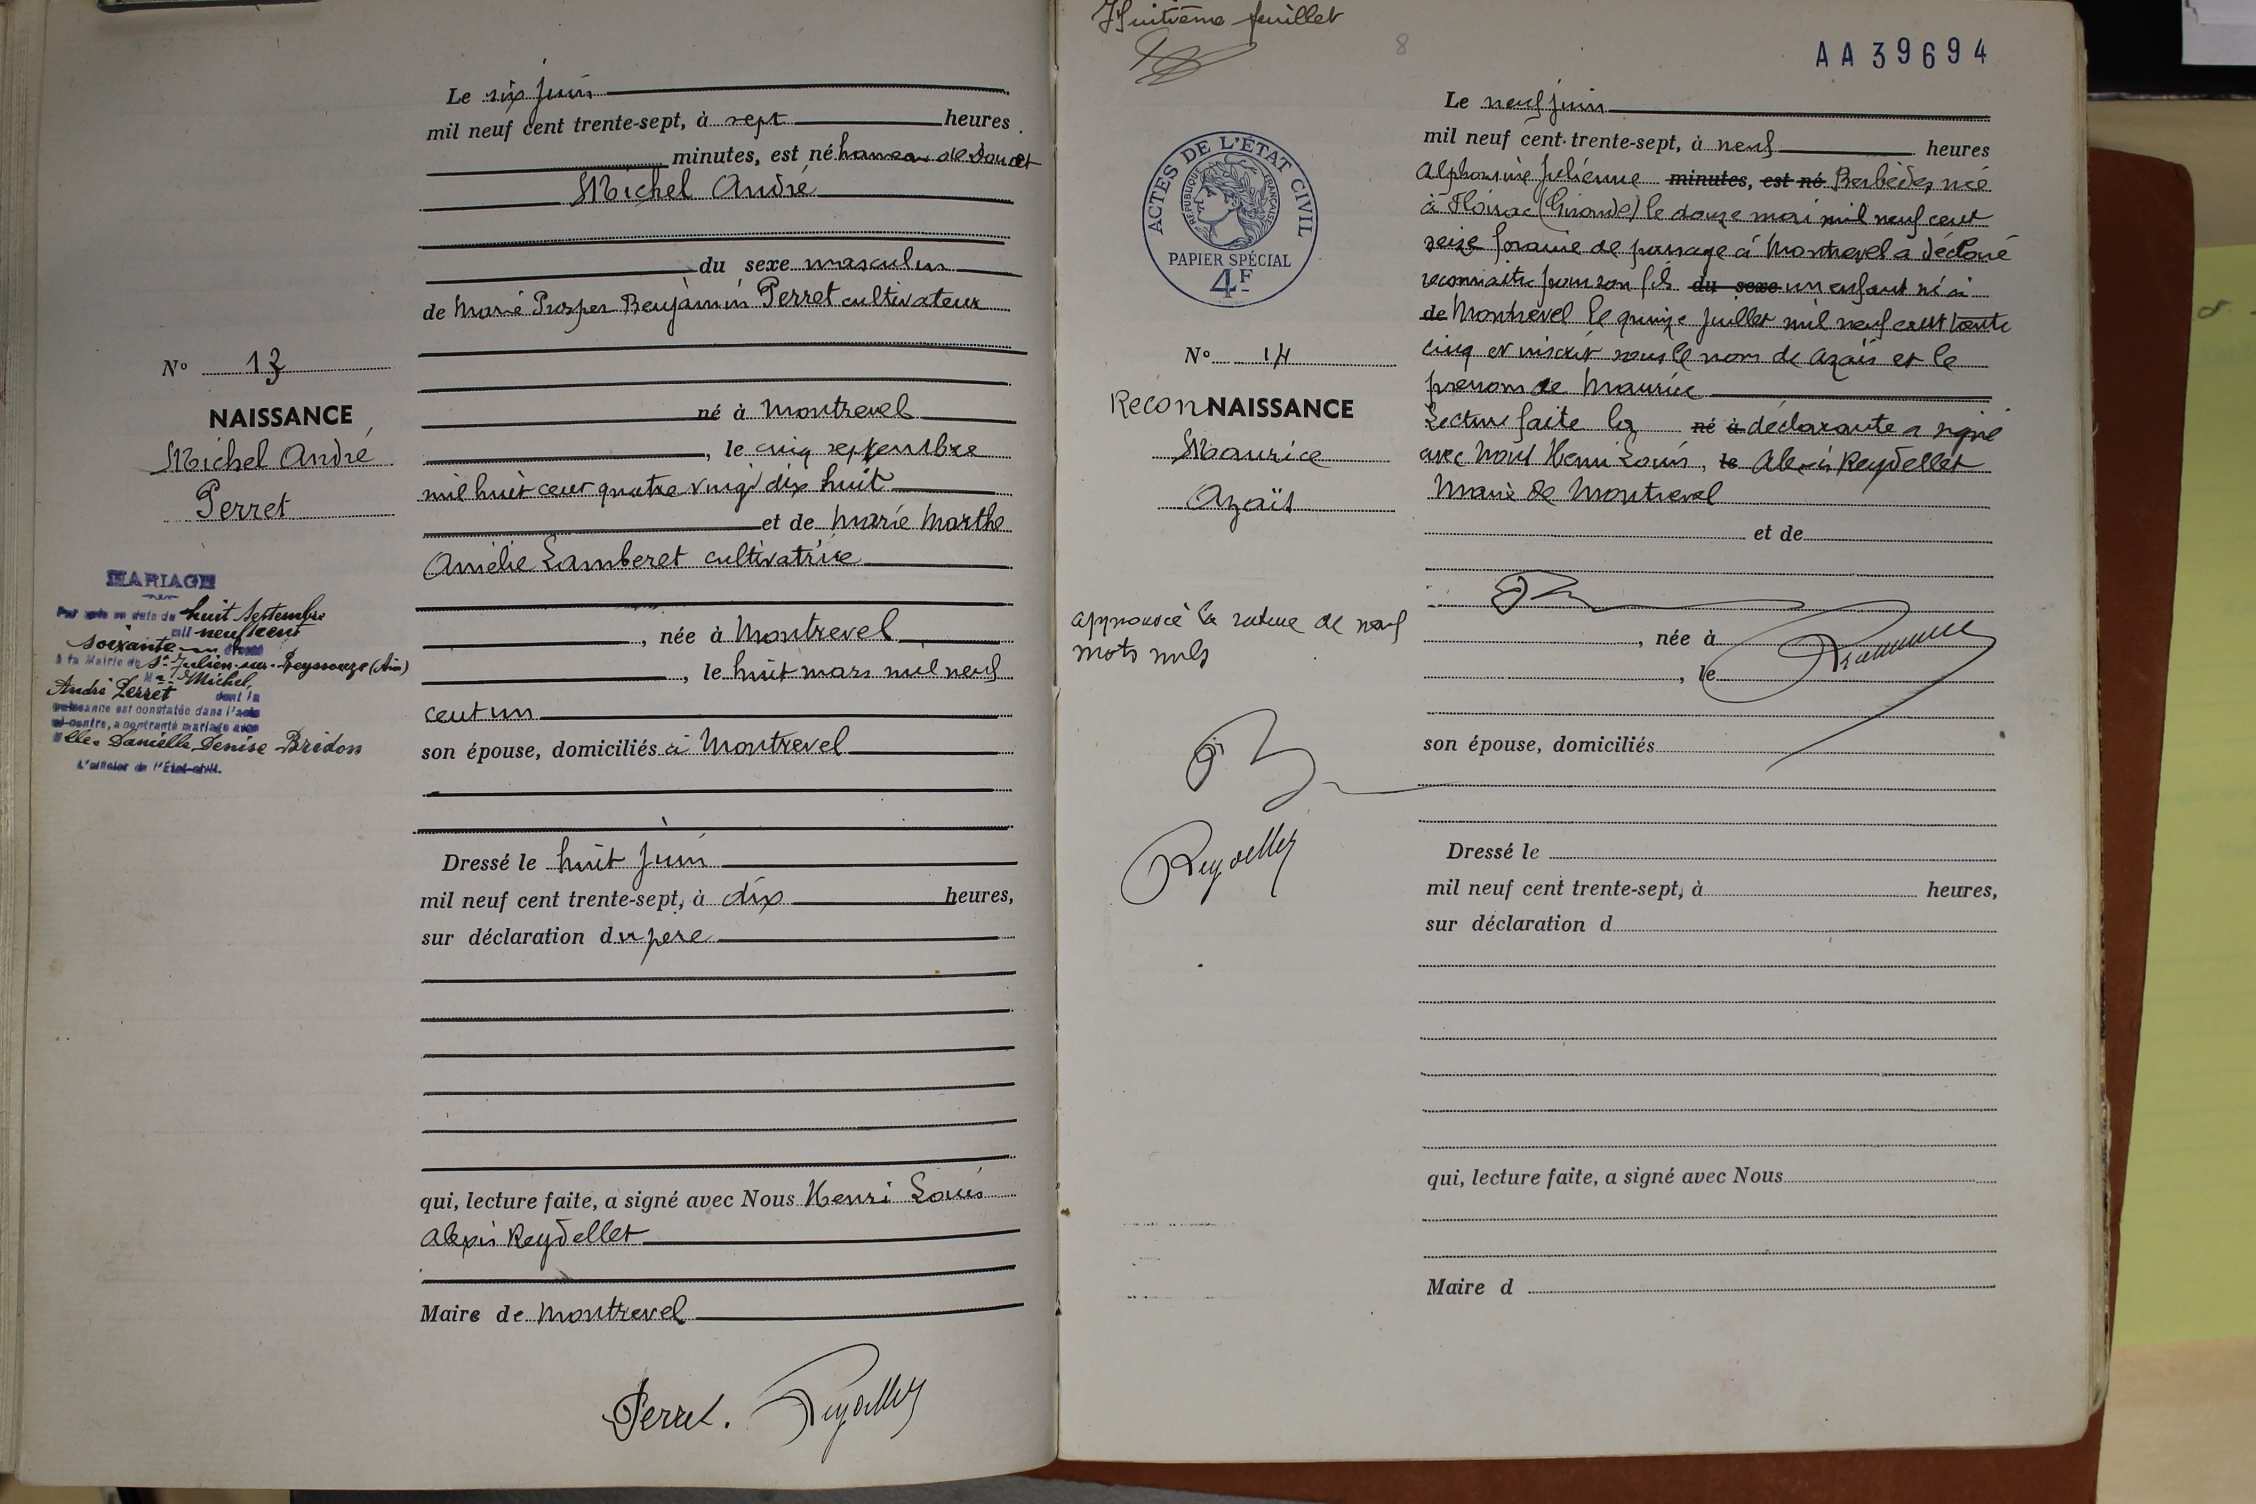 Le six juin
mil neuf cent trente-sept, à sept heures
minutes, est né hameau de
Michel André
du sexe masculin
de Marie Prosper Benjamin Perret cultivateur
né à Montrevel
, le cinq septembre
mil huit cent quatre vingt dix huit
et de Marie Marthe
Amélie Lamberet cultivatrice
, née à Montrevel
, le huit mars mil neuf
cent un
son épouse, domiciliés à Montrevel
Dressé le huit juin
mil neuf cent trente-sept, à dix heures,
sur déclaration du père
qui, lecture faite, a signé avec Nous Henri Louis
Alexis Reydellet
Maire de Montrevel
Perret. Reydellet
No 13
NAISSANCE
Michel André
Perret
MARIAGE
Par acte en date du huit Septembre
mil neuf cent
soixante
à la Mairie de St Julien-sur-Reyssouze (Ain)
Mr Michel,
André Perret dont la
naissance est constatée dans l'acte
ci-contre, a contracté mariage avec
Elle. Danielle, Denise Bridon
L'officier de l'État-civil.
Huitième feuillet
8
AA39694
ACTES DE L'ÉTAT CIVIL
RÉPUBLIQUE FRANÇAISE
PAPIER SPÉCIAL
4F
No 14
ReconNAISSANCE
Maurice
Azaïs
approuvé la rature de neuf
mots nuls
Reydellet
Le neuf juin
mil neuf cent trente-sept, à neuf heures
Alphonsine Julienne minutes, est né Berbèdes née
à Floirac (Gironde) le douze mai mil neuf cent
seize foraine de passage à Montrevel a déclaré
reconnaître pour son fils du sexe un enfant né à
de Montrevel le quinze juillet mil neuf cent trente
cinq et inscrit sous le nom de Azaïs et le
prénom de Maurice
Lecture faite la né à déclarante a signé
avec Nous Henri Louis, le Alexis Reydellet
Maire de Montrevel
et de
, née à
, le
son épouse, domiciliés
Dressé le
mil neuf cent trente-sept, à heures,
sur déclaration d
qui, lecture faite, a signé avec Nous
Maire d